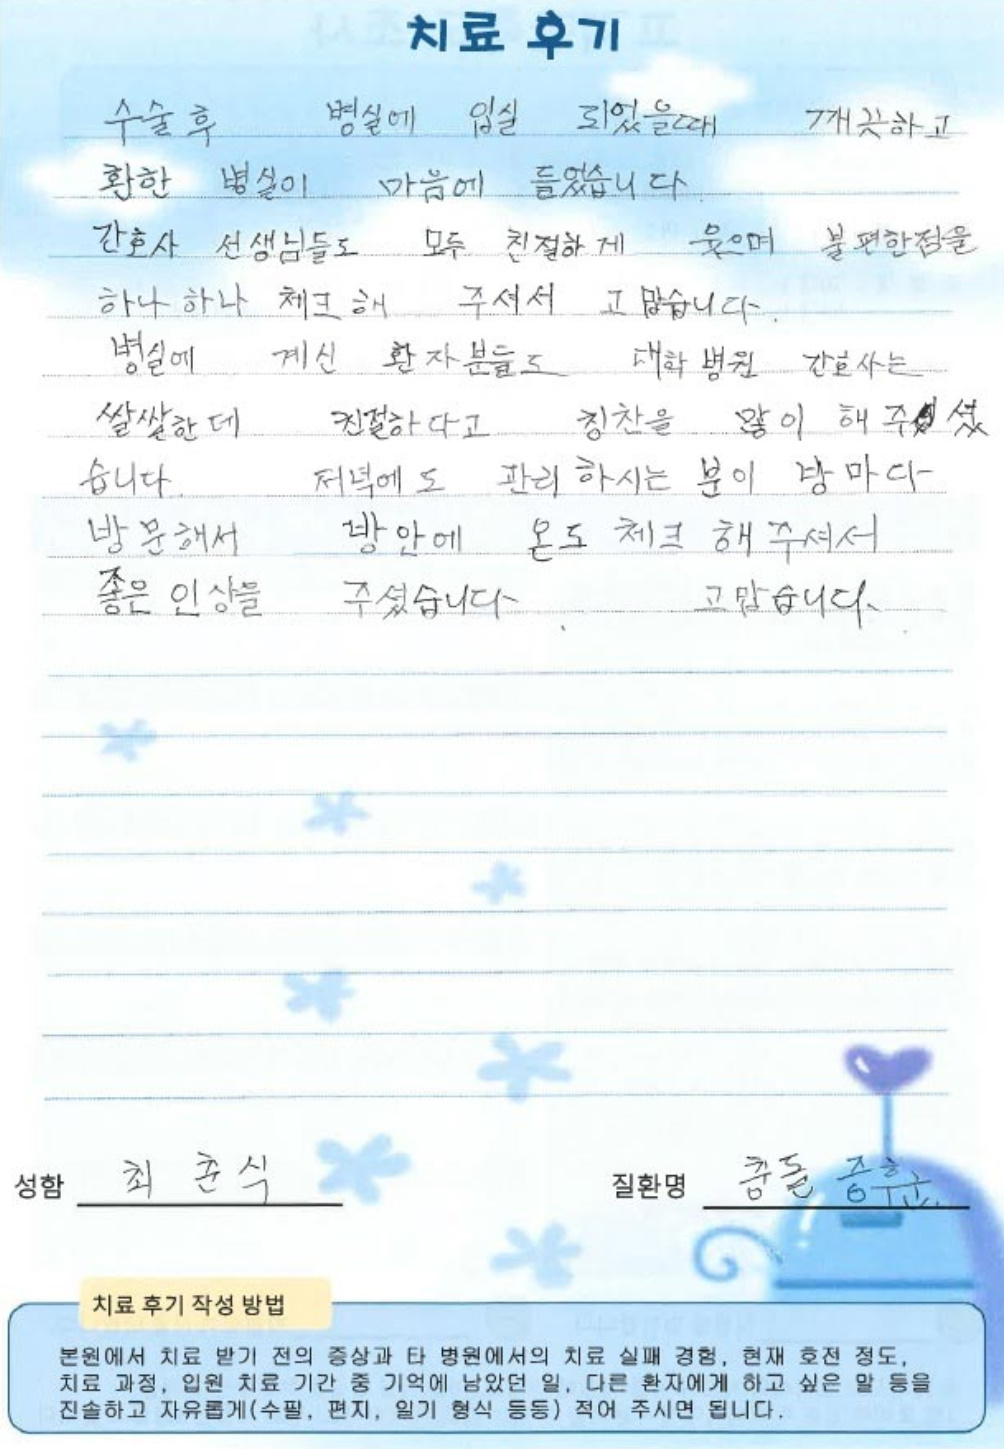 치료 후기
수술후 병실에 입실 되었을때 깨끗하고
환한 병실이 마음에 들었습니다.
간호사 선생님들도 모두 친절하게 웃으며 불편한점을
하나하나 체크해 주셔서 고맙습니다.
병실에 계신 환자분들도 대학병원 간호사는
쌀쌀한데 친절하다고 칭찬을 많이 해주셨
습니다. 저녁에도 관리하시는 분이 방마다
방문해서 방안에 온도 체크 해주셔서
좋은 인상을 주셨습니다. 고맙습니다.
성함 최춘식 질환명 충돌 증후군.
치료 후기 작성 방법
본원에서 치료 받기 전의 증상과 타 병원에서의 치료 실패 경험, 현재 호전 정도,
치료 과정, 입원 치료 기간 중 기억에 남았던 일, 다른 환자에게 하고 싶은 말 등을
진솔하고 자유롭게(수필, 편지, 일기 형식 등등) 적어 주시면 됩니다.